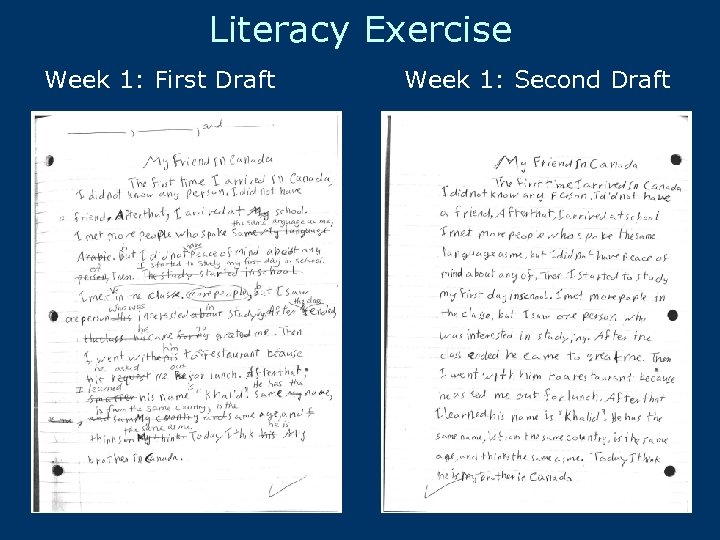 Literacy Exercise
Week 1: First Draft
Week 1: Second Draft
, , and
My Friend In Canada
The first time I arrived in Canada,
I did not know any person, I did not have
a friend, After that, I arrived at My school.
the same language as me,
I met more people who spoke same My language
Arabic. but I did not peace of mind about any
I started to study my first day in school.
person, Then. The study started in school
I met in the classe, more people, I saw
who was in the class
one person his interested about studying. After ended,
he to
the class his came for my greated me. Then
him
I went with his to restaurant because
he asked out
his request me for lunch. After that
I learned is He has the
his name "Khalid". Same my name,
is from the same country, is the
and same My country and same age, and
the same as me. he is
thinks My think Today I this his My
brother in Canada.
My Friend In Canada
The First Time I arrived In Canada
I did not know any Person, I do not have
a friend, After that, I arrived at school
I met more people who spoke the same
language as me, but I did not have Peace of
mind about any of, Then I started to study
my first day in school. I met more people in
the clage, but I saw one person who
was interested in studying. After the
class ended he came to great me. Then
I went with him to a restaurant because
he asked me out for lunch, After that
I learned his name is "Khalid". He has the
same name, is from the same country, is the same
age, and thinks the same as me. Today I think
he is my brother in Canada